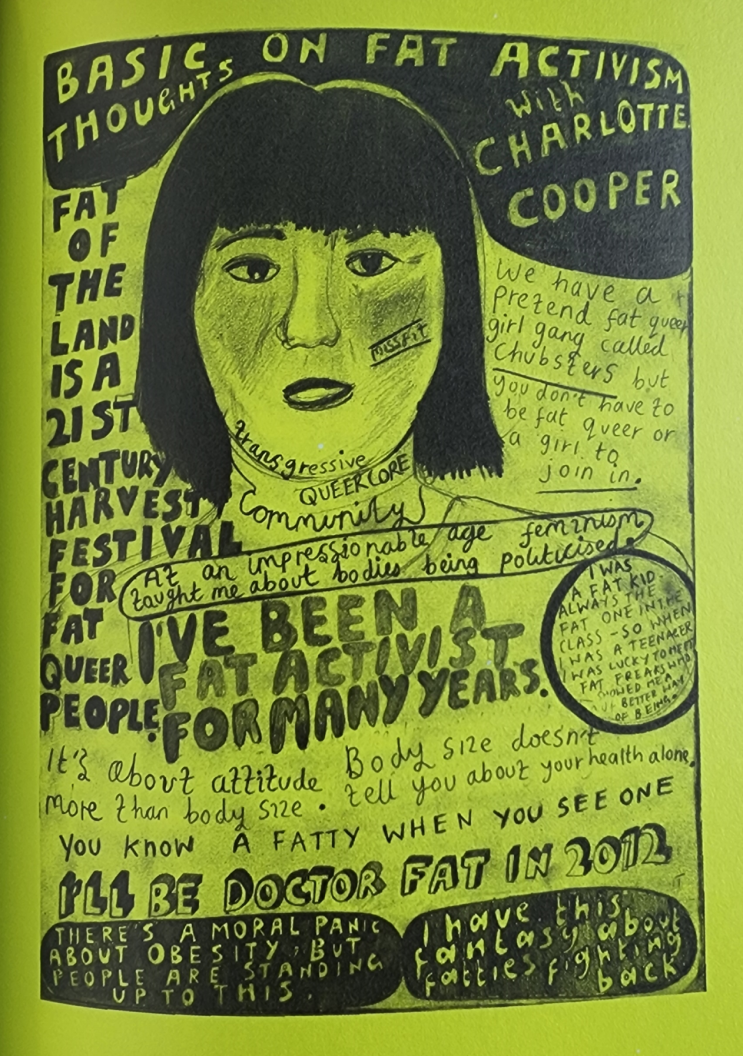 BASIC
THOUGHTS
ON FAT ACTIVISM
with
CHARLOTTE
COOPER
FAT
OF
THE
LAND
IS A
21ST
CENTURY
HARVEST
FESTIVAL
FOR
FAT
QUEER
PEOPLE.
We have a
Pretend fat queer
girl gang called
Chubsters but
you don't have to
be fat queer or
a girl to
join in.
MISFIT
transgressive
QUEERCORE
Community
At an impressionable age feminism
taught me about bodies being politicised.
I WAS
A FAT KID
ALWAYS THE
FAT ONE IN THE
CLASS - SO WHEN
I WAS A TEENAGER
I WAS LUCKY TO MEET
FAT FREAKS WHO
SHOWED ME A
BETTER WAY
OF BEING.
I'VE BEEN A
FAT ACTIVIST
FOR MANY YEARS.
It's about attitude
more than body size.
Body size doesn't
tell you about your health alone.
YOU KNOW A FATTY WHEN YOU SEE ONE
I'LL BE DOCTOR FAT IN 2012
THERE'S A MORAL PANIC
ABOUT OBESITY, BUT
PEOPLE ARE STANDING
UP TO THIS.
I have this
fantasy about
fatties fighting
back